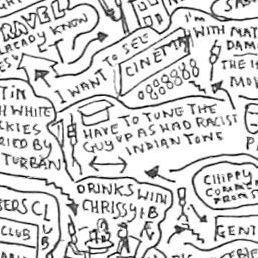 TRAVEL
ALREADY KNOW
I WANT TO SEE
CINEMA
I'm
WITH MATT
DAMO
THE I
MOV
SA
TIN
H WHITE
CKIES
RIED BY
TURBAN
HAVE TO TUNE THE
GUY UP AS HAD RACIST
INDIAN TOWS
DRINKS WITH
CHRISSY B
CHIPPY
COMME
FROM S
SERS CL
CLUB
CLUB
GENT
DIS